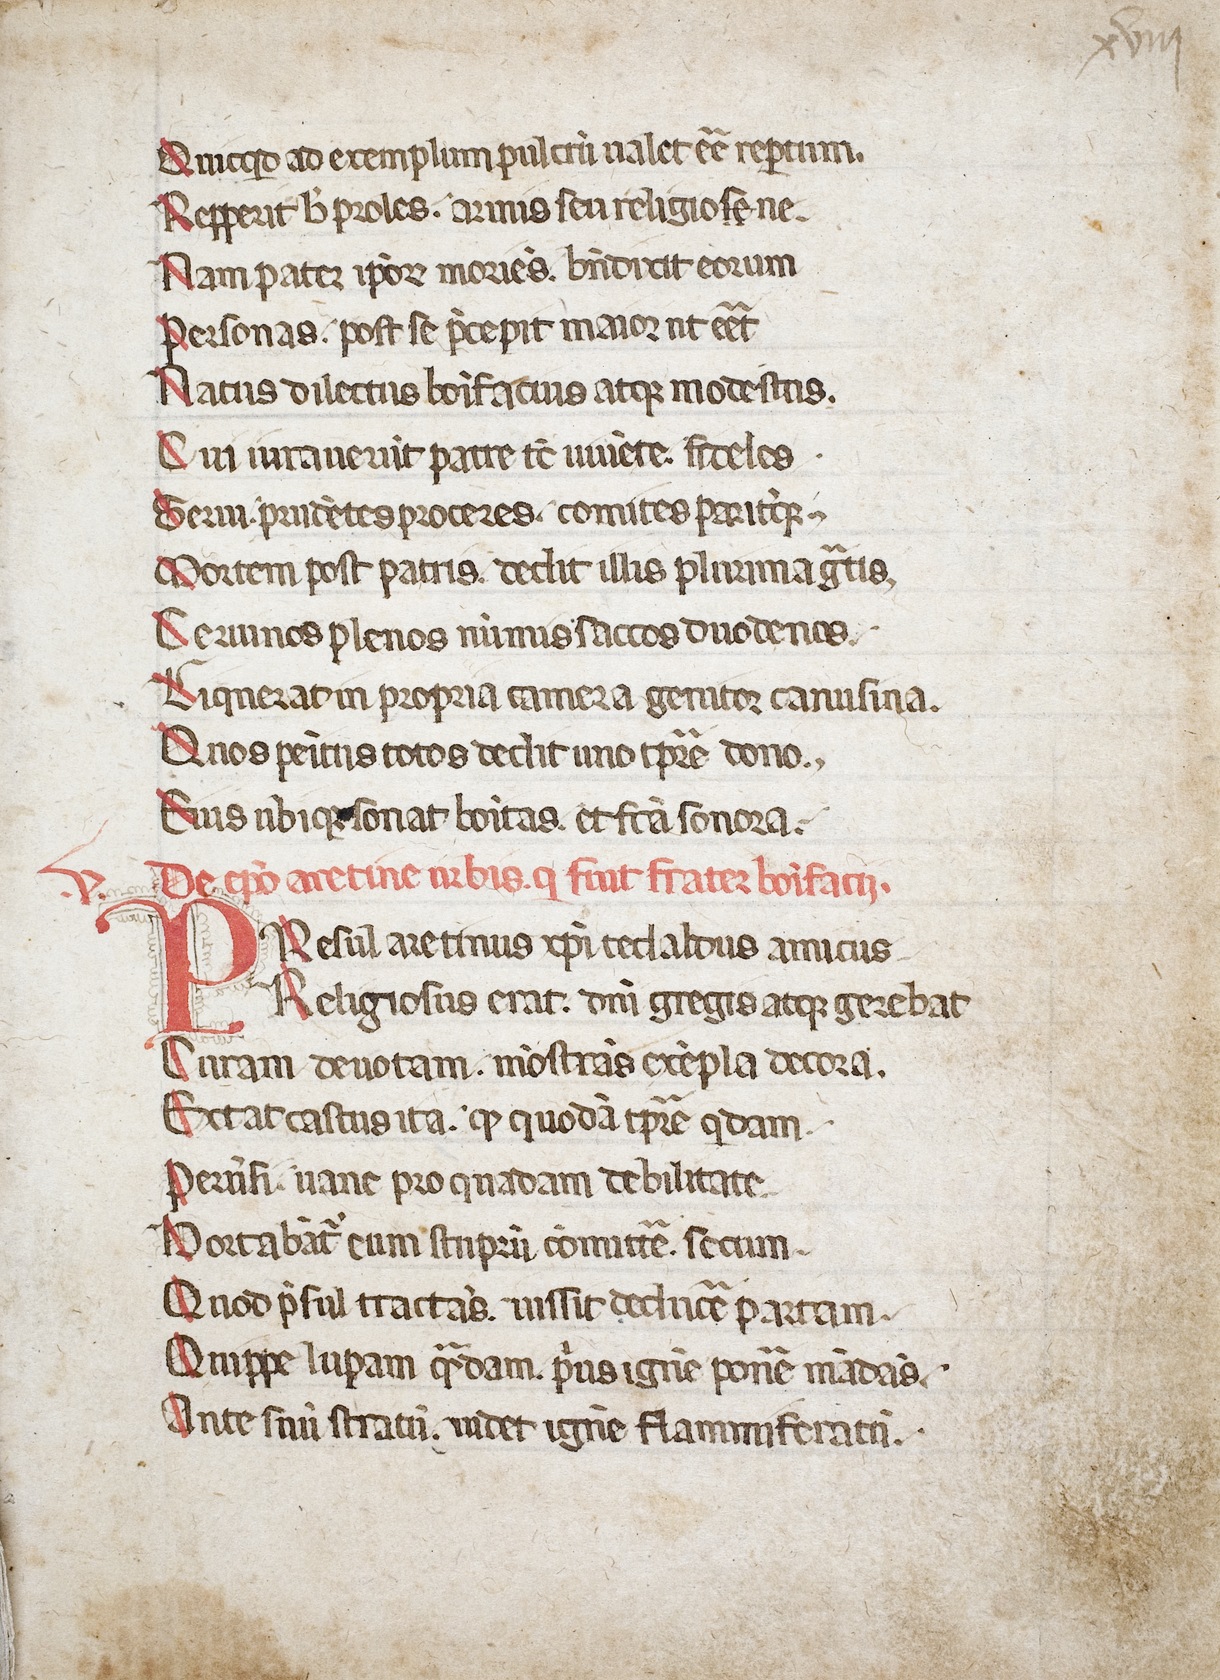 xviij
Quicqd ad exemplum pulcrũ ualet ee͂ reptum.
Repperit b̃ proles. armis seu religiose ne.
Nam pater ip̃oꝝ moriẽs. bñdixit eorum
Personas. post se p̃cepit maior ut eet͂
Natus dilectus boĩfacius atqꝫ modestus.
Cui iurauerũt patre tc̃ uiuẽte. fideles
Serui. prudẽtes proceres. comites paritqꝫ
Mortem post patris. dedit illis plurima gr̃atis,
Ceruinos plenos nũmis saccos duodenos.
Liquerat in propria camera genitor canusina.
Quos peĩtus totos dedit uno tp̃re dono.,
Eius ubiqꝫ sonat boĩtas. et fãa sonora.
v. De ep̃o aretine urbis. q fuit frater boĩfacij.
PResul aretinus xp̃i tedaldus amicus
Religiosus erat. dñi gregis atqꝫ gerebat
Curam deuotam. mõstrãs exẽpla decora.
Extat castus ita. ꝙ quodã tp̃re qdam
Peruisi. uane pro quadam debilitate.
Portabãt eum stuprũ cõmittẽ. secum
Quod p̃sul tractãs. iussit deducẽ partam
Quippe lupam qr̃dam. p̃us igñe ponẽ mãdãs.
Ante suũ stratũ. uidet igñe flammiferatũ.